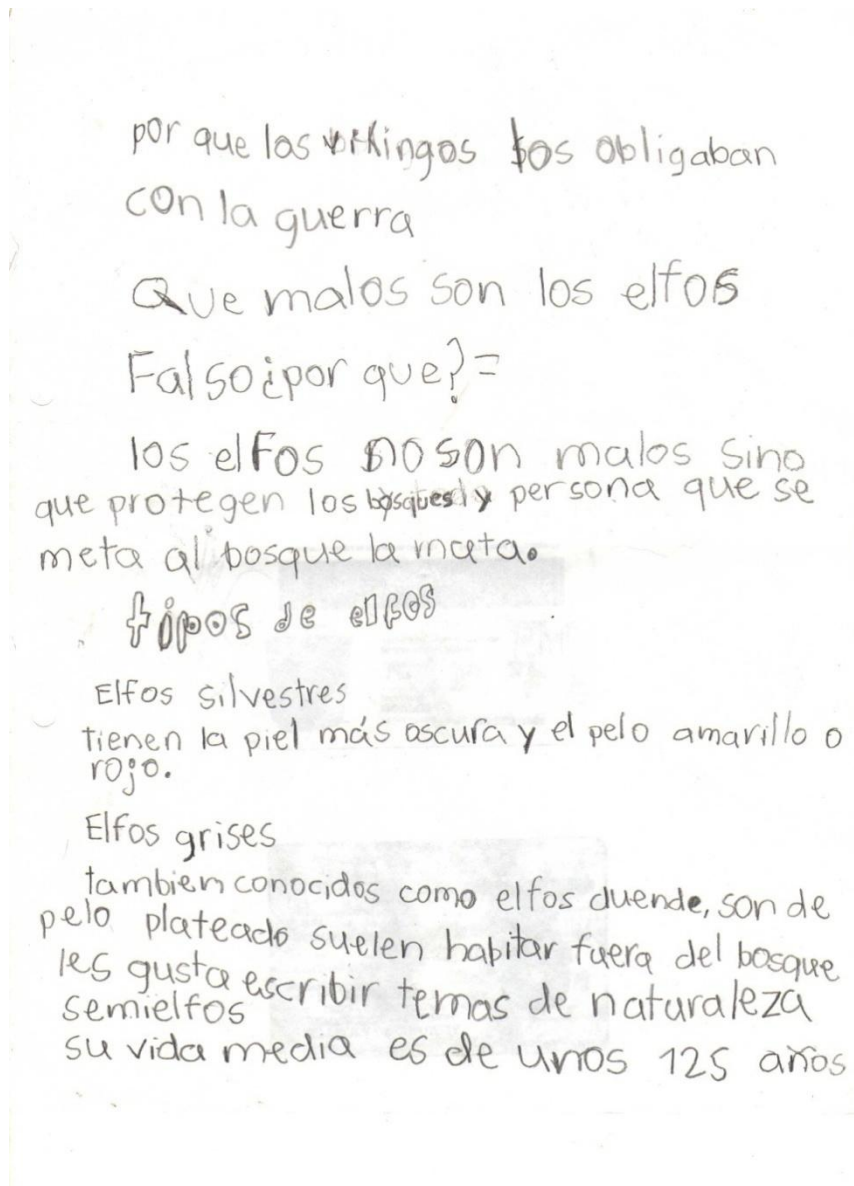 por que los vikingos los obligaban
con la guerra
Que malos son los elfos
Falso¿por que?=
los elfos no son malos sino
que protegen los bosques y persona que se
meta al bosque la mata.
tipos de elfos
Elfos silvestres
tienen la piel más oscura y el pelo amarillo o
rojo.
Elfos grises
tambien conocidos como elfos duende, son de
pelo plateado suelen habitar fuera del bosque
les gusta escribir temas de naturaleza
semielfos
su vida media es de unos 125 años